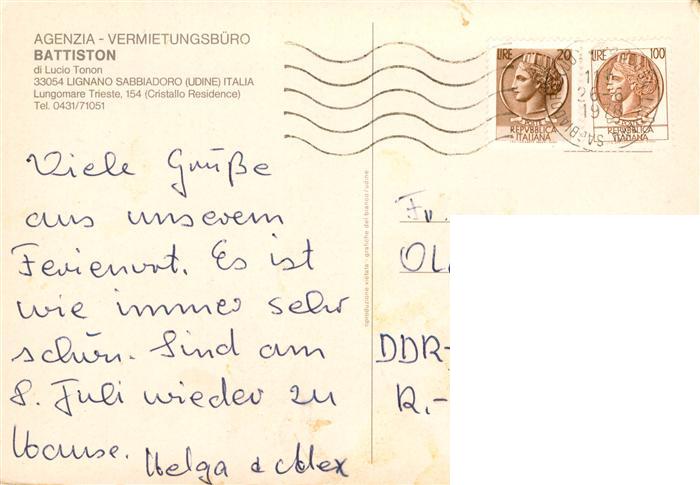 AGENZIA - VERMIETUNGSBÜRO
BATTISTON
di Lucio Tonon
33054 LIGNANO SABBIADORO (UDINE) ITALIA
Lungomare Trieste, 154 (Cristallo Residence)
Tel. 0431/71051
LIRE 20
REPVBBLICA
ITALIANA
LIRE 100
REPVBBLICA
ITALIANA
Viele Grüße
aus unserem
Ferienort. Es ist
wie immer sehr
schön. Sind am
8. Juli wieder zu
Hause.
Helga & Alex
riproduzione vietata - grafiche del bianco/udine
Fr.
OL
DDR-
R.-